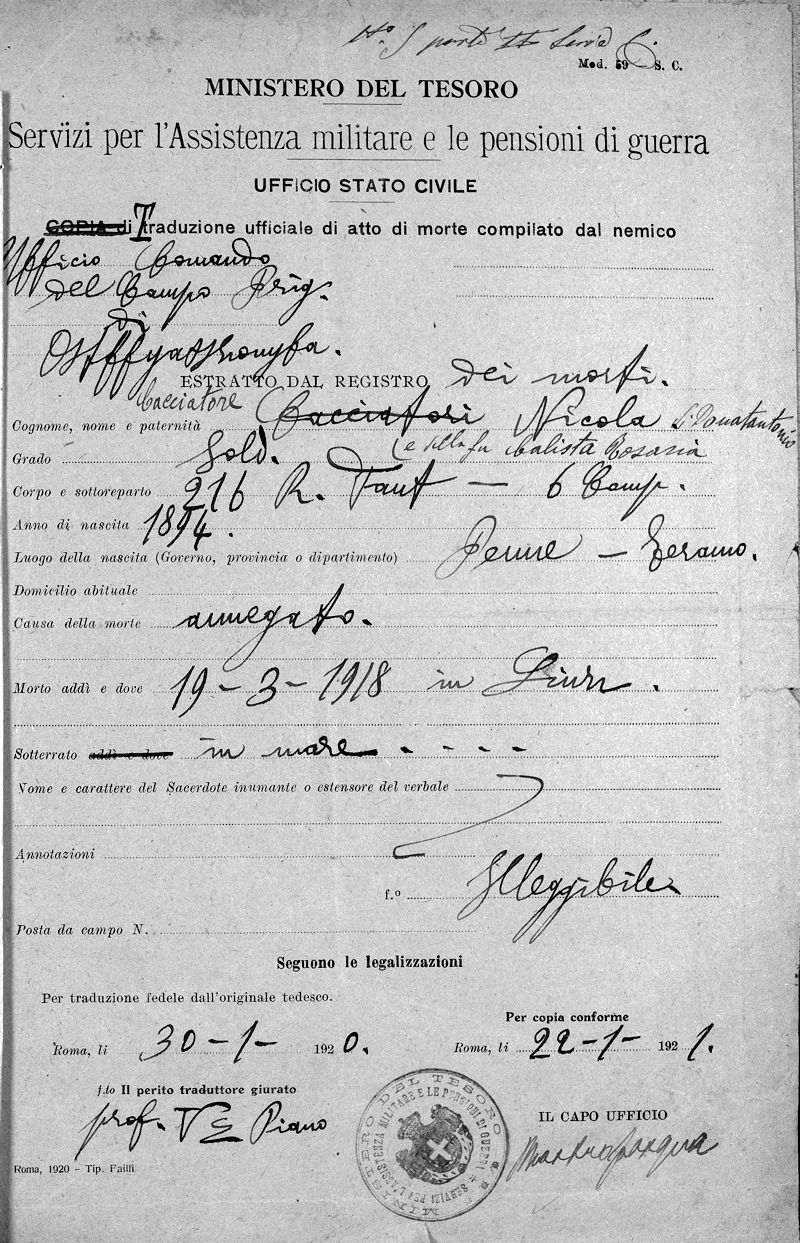 parte II Serie C.
Mod. 59 - S. C.
MINISTERO DEL TESORO
Servizi per l'Assistenza militare e le pensioni di guerra
UFFICIO STATO CIVILE
COPIA di Traduzione ufficiale di atto di morte compilato dal nemico
Ufficio Comando
del Campo Prig.
di
ESTRATTO DAL REGISTRO dei morti.
Cacciatore
Cognome, nome e paternità Cacciatori Nicola di Donatantonio
Grado Sold. (e della fu Calista Rosaria
Corpo e sottoreparto 216 R. Fant - 6 Comp.
Anno di nascita 1894.
Luogo della nascita (Governo, provincia o dipartimento) Penne - Teramo.
Domicilio abituale
Causa della morte annegato.
Morto addì e dove 19-3-1918 in
Sotterrato addì e dove in mare - - - -
Nome e carattere del Sacerdote inumante o estensore del verbale
Annotazioni
f.º Illeggibile
Posta da campo N.
Seguono le legalizzazioni
Per traduzione fedele dall'originale tedesco.
Per copia conforme
Roma, li 30-1- 1920.
Roma, li 22-1- 1921.
f.to Il perito traduttore giurato
prof. V E Piano
IL CAPO UFFICIO
MINISTERO DEL TESORO
SERVIZI PER L'ASSISTENZA MILITARE E LE PENSIONI DI GUERRA
Roma, 1920 - Tip. Failli